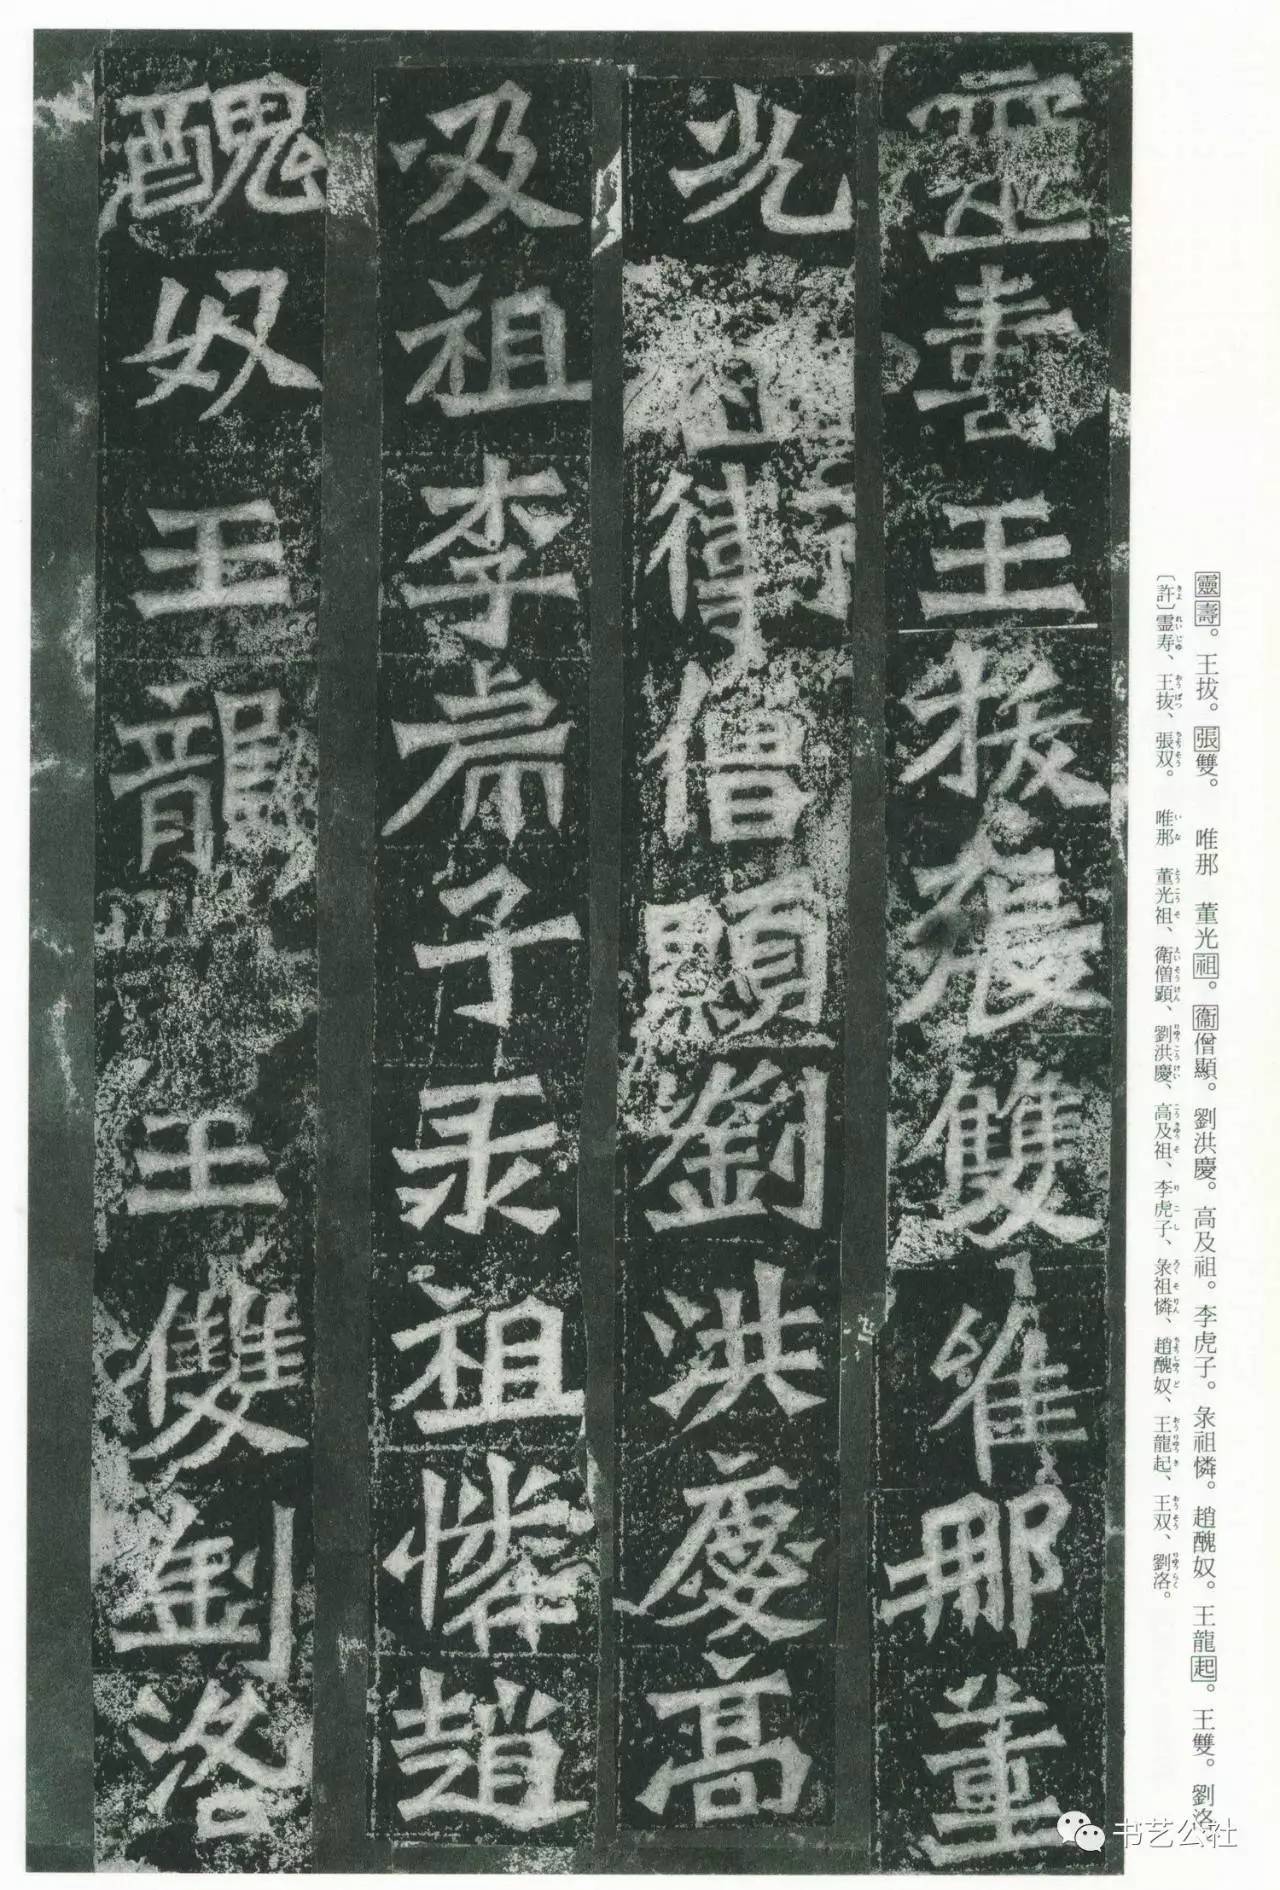 靈壽王拔張雙唯那董
光祖衛僧顯劉洪慶高
及祖李虎子彖祖憐趙
醜奴王龍王雙劉洛
靈壽。王拔。張雙。 唯那 董光祖。衞僧顯。劉洪慶。高及祖。李虎子。彖祖憐。趙醜奴。王龍起。王雙。劉洛。
〔許〕霊寿、王抜、張双。 唯那 董光祖、衛僧顕、劉洪慶、高及祖、李虎子、彖祖憐、趙醜奴、王龍起、王双、劉洛。
书艺公社